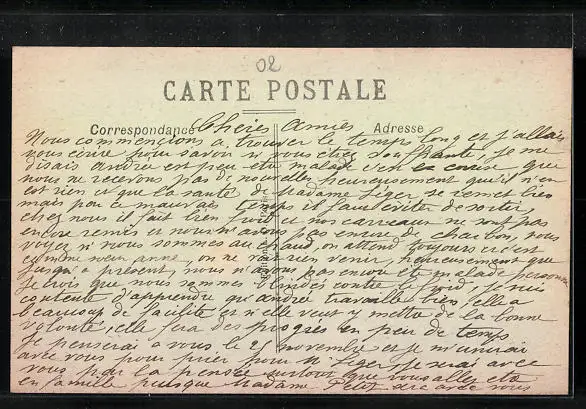 02
CARTE POSTALE
Correspondance Adresse
Chères Amies
Nous commencions a trouver le temps long et j'allais
vous écrire pour savoir si vous étiez souffrante, je me
disais André est peu etre malade c'en la cause que
nous ne recevons pas de nouvelles heureusement qu'il n'en
est rien et que la santé de Madame Léger se remet bien
mais par ce mauvais temps il faut éviter de sortir
chez nous il fait bien froid et nos carreaux ne sont pas
encore remis et nous n'avons pas encore de charbon, vous
voyez si nous sommes au chaud, on attend toujours c'est
comme soeur anne, on ne voit rien venir, heureusement que
jusqu'a présent, nous n'avons pas encore été malade personne
je crois que nous sommes blindés contre le froid, je suis
contente d'apprendre qu'andrée travaille bien, elle a
beaucoup de facilité et si elle veut y mettre de la bonne
volonté, elle fera des progrès en peu de temps
Je penserai a vous le 21 novembre et je m'unirai
avec vous pour prier pour Mr Léger, je serai avec
vous par la pensée surtout que vous allez etre
en famille puisque Madame Petit sera avec vous